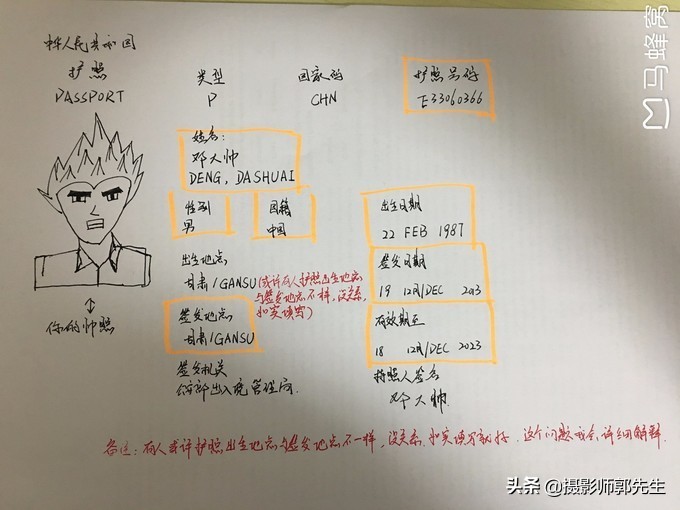 中华人民共和国
护照
PASSPORT
类型
P
国家码
CHN
护照号码
E33060366
姓名:
邓大帅
DENG, DASHUAI
性别
男
国籍
中国
出生日期
22 FEB 1987
出生地点
甘肃/GANSU(或许有人护照出生地点
与签发地点不一样,没关系,
如实填写)
签发日期
19 12月/DEC 2013
签发地点
甘肃/GANSU
有效期至
18 12月/DEC 2023
签发机关
公安部出入境管理局
持照人签名
邓大帅
你的帅照
备注:有人或许护照出生地点与签发地点不一样,没关系,如实填写就好.这个问题我会详细解释.
马蜂窝
头条 @摄影师郭先生